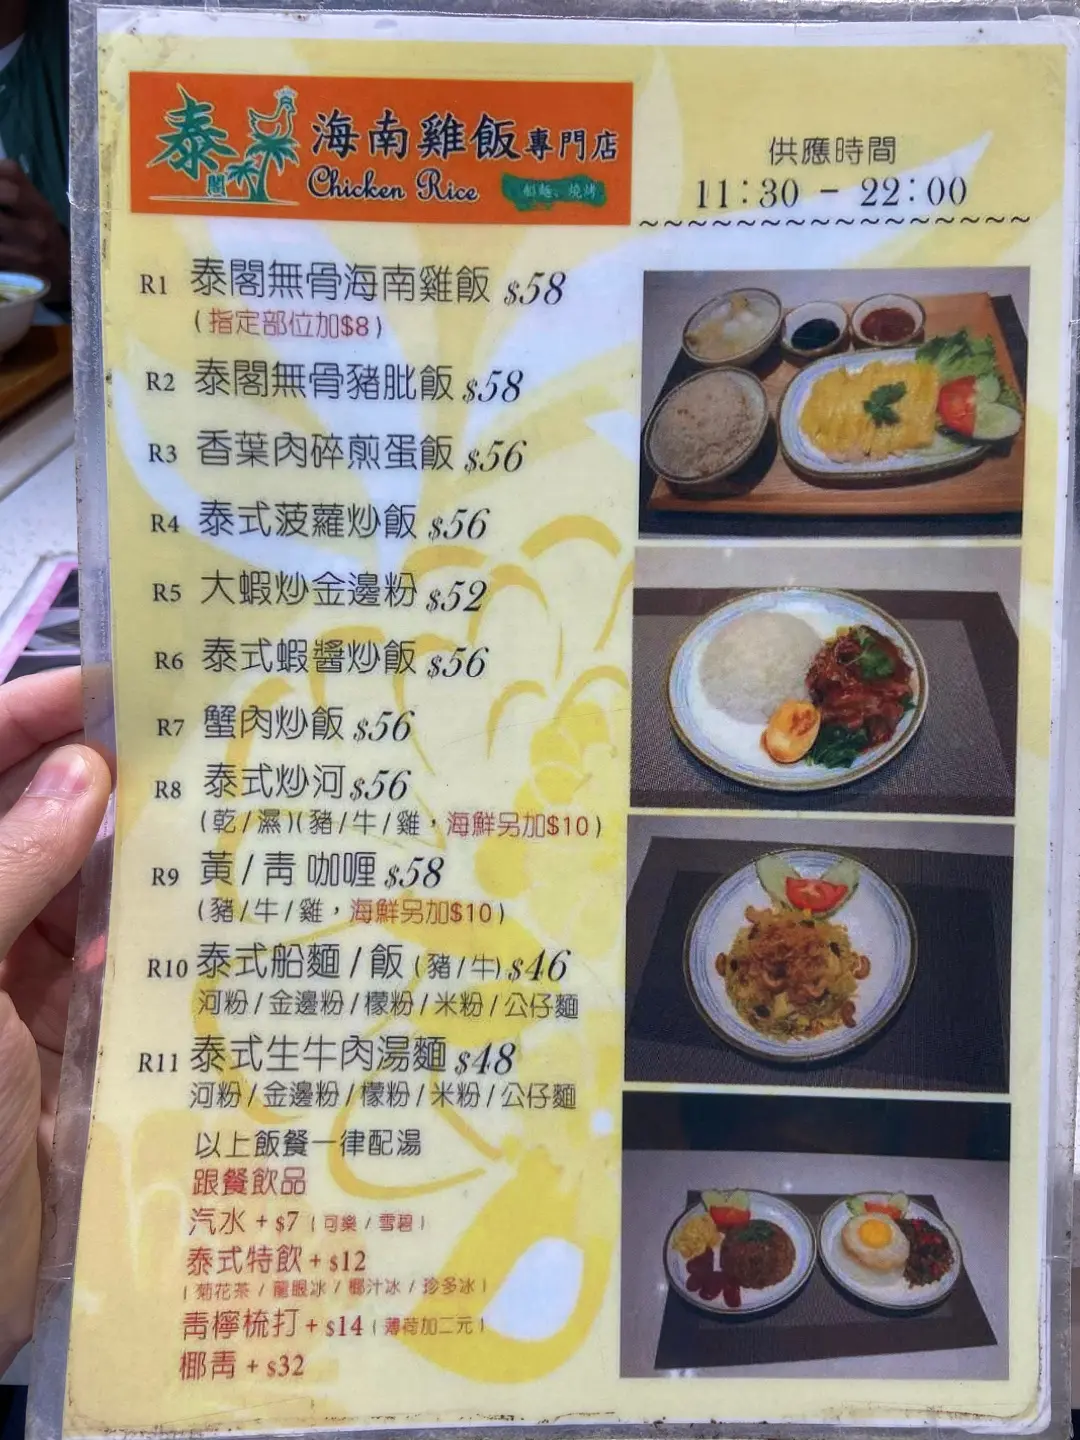 泰閣
海南雞飯專門店
Chicken Rice
船麵、燒烤
供應時間
11:30 - 22:00
R1 泰閣無骨海南雞飯 $58
(指定部位加$8)
R2 泰閣無骨豬肶飯 $58
R3 香葉肉碎煎蛋飯 $56
R4 泰式菠蘿炒飯 $56
R5 大蝦炒金邊粉 $52
R6 泰式蝦醬炒飯 $56
R7 蟹肉炒飯 $56
R8 泰式炒河 $56
(乾/濕)(豬/牛/雞，海鮮另加$10)
R9 黃/青 咖喱 $58
(豬/牛/雞，海鮮另加$10)
R10 泰式船麵/飯 (豬/牛) $46
河粉/金邊粉/檬粉/米粉/公仔麵
R11 泰式生牛肉湯麵 $48
河粉/金邊粉/檬粉/米粉/公仔麵
以上飯餐一律配湯
跟餐飲品
汽水 + $7 (可樂/雪碧)
泰式特飲 + $12
(菊花茶/龍眼冰/椰汁冰/珍多冰)
青檸梳打 + $14 (薄荷加二元)
椰青 + $32